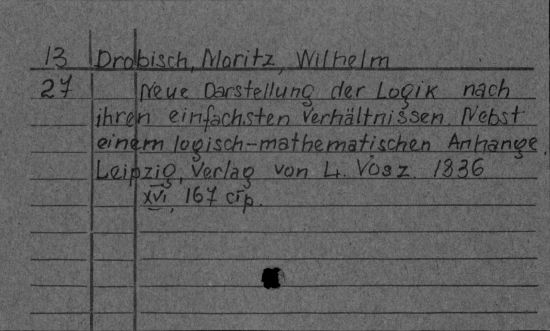 13 Drobisch, Moritz, Wilhelm
27 Neue Darstellung der Logik nach
ihren einfachsten Verhältnissen. Nebst
einem logisch-mathematischen Anhange.
Leipzig, Verlag von L. Vosz. 1836
XVI, 167 стр.